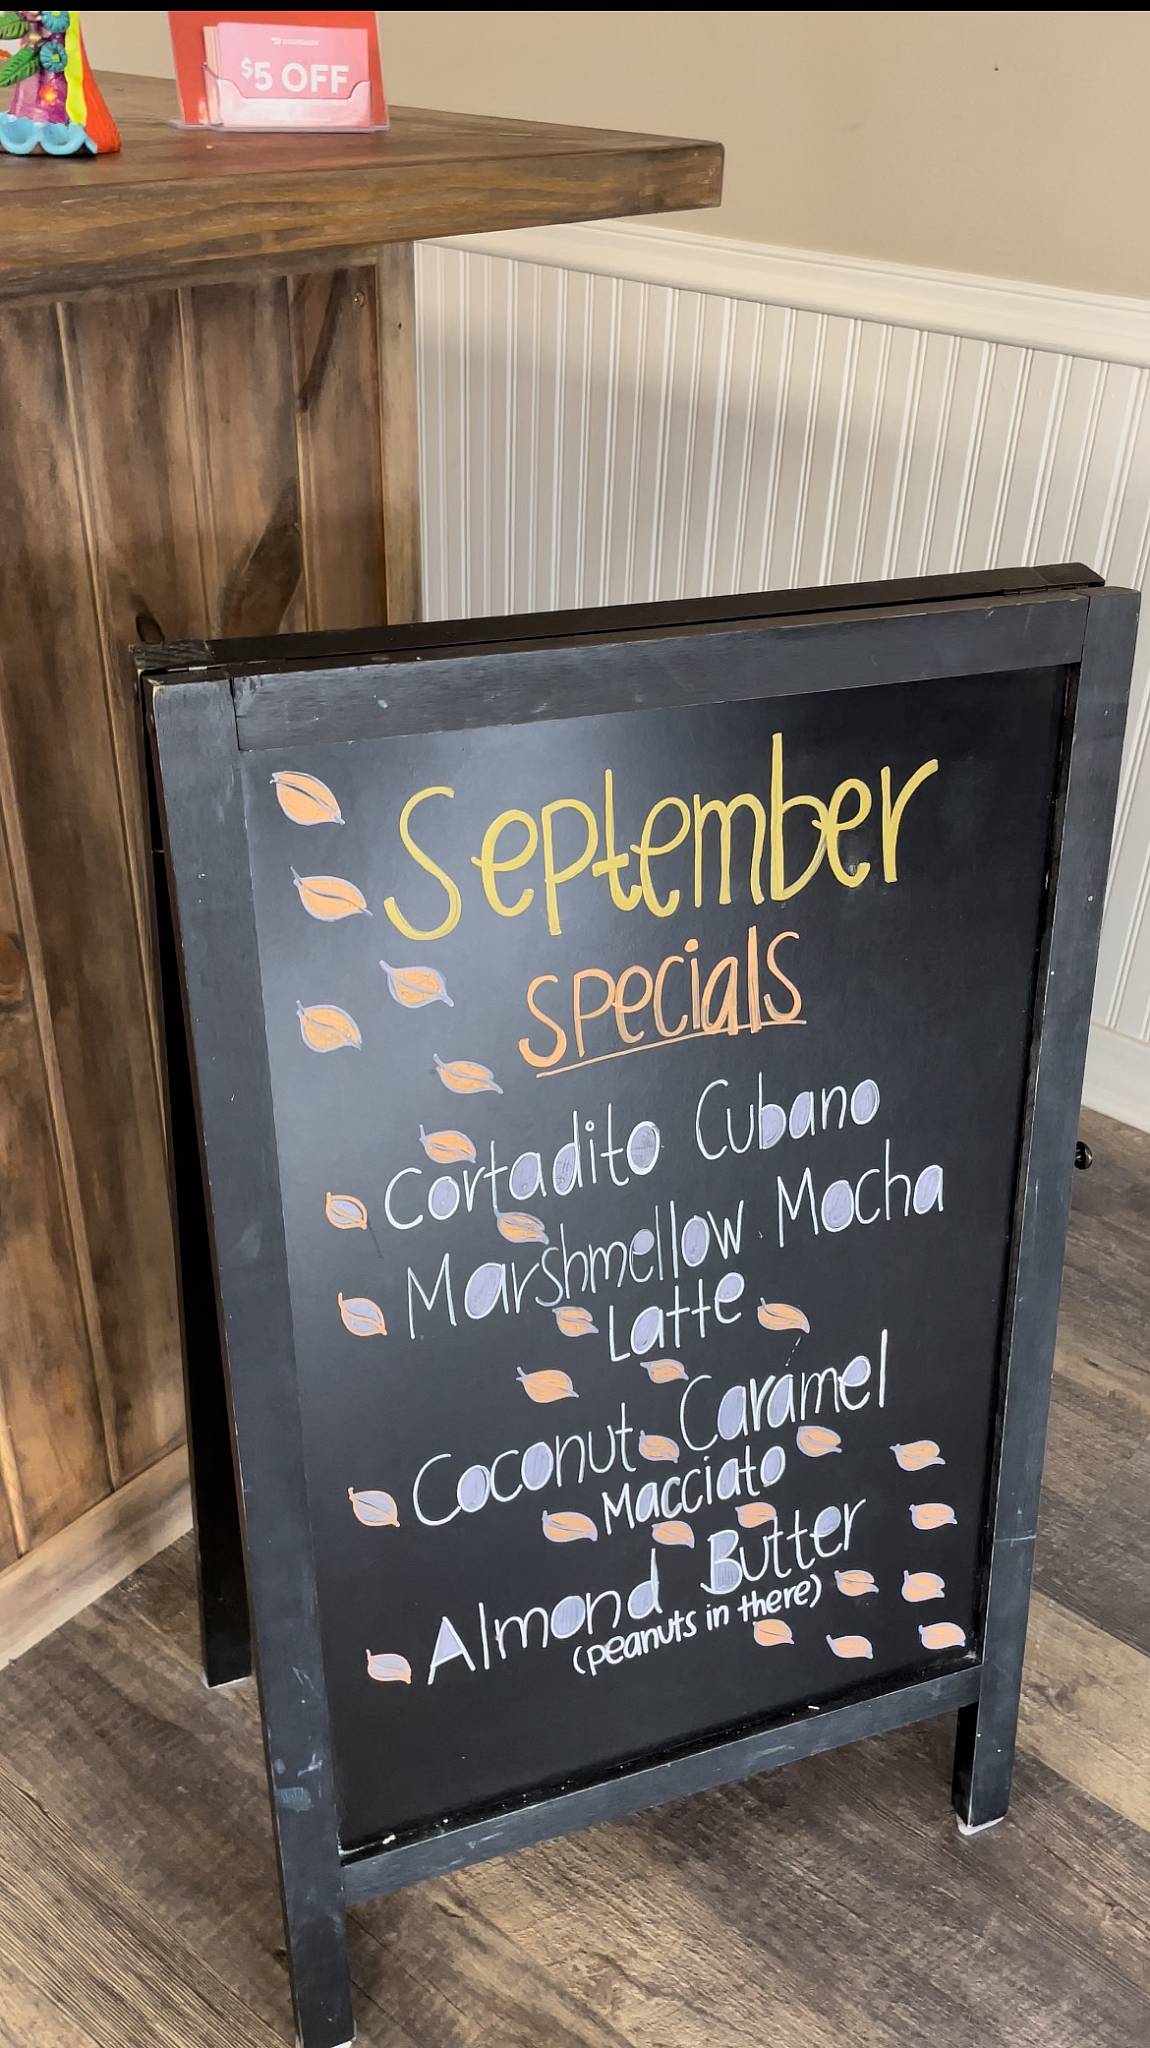 $5 OFF
September
specials
Cortadito Cubano
Marshmellow Mocha
Latte
Coconut Caramel
Macciato
Almond Butter
(peanuts in there)